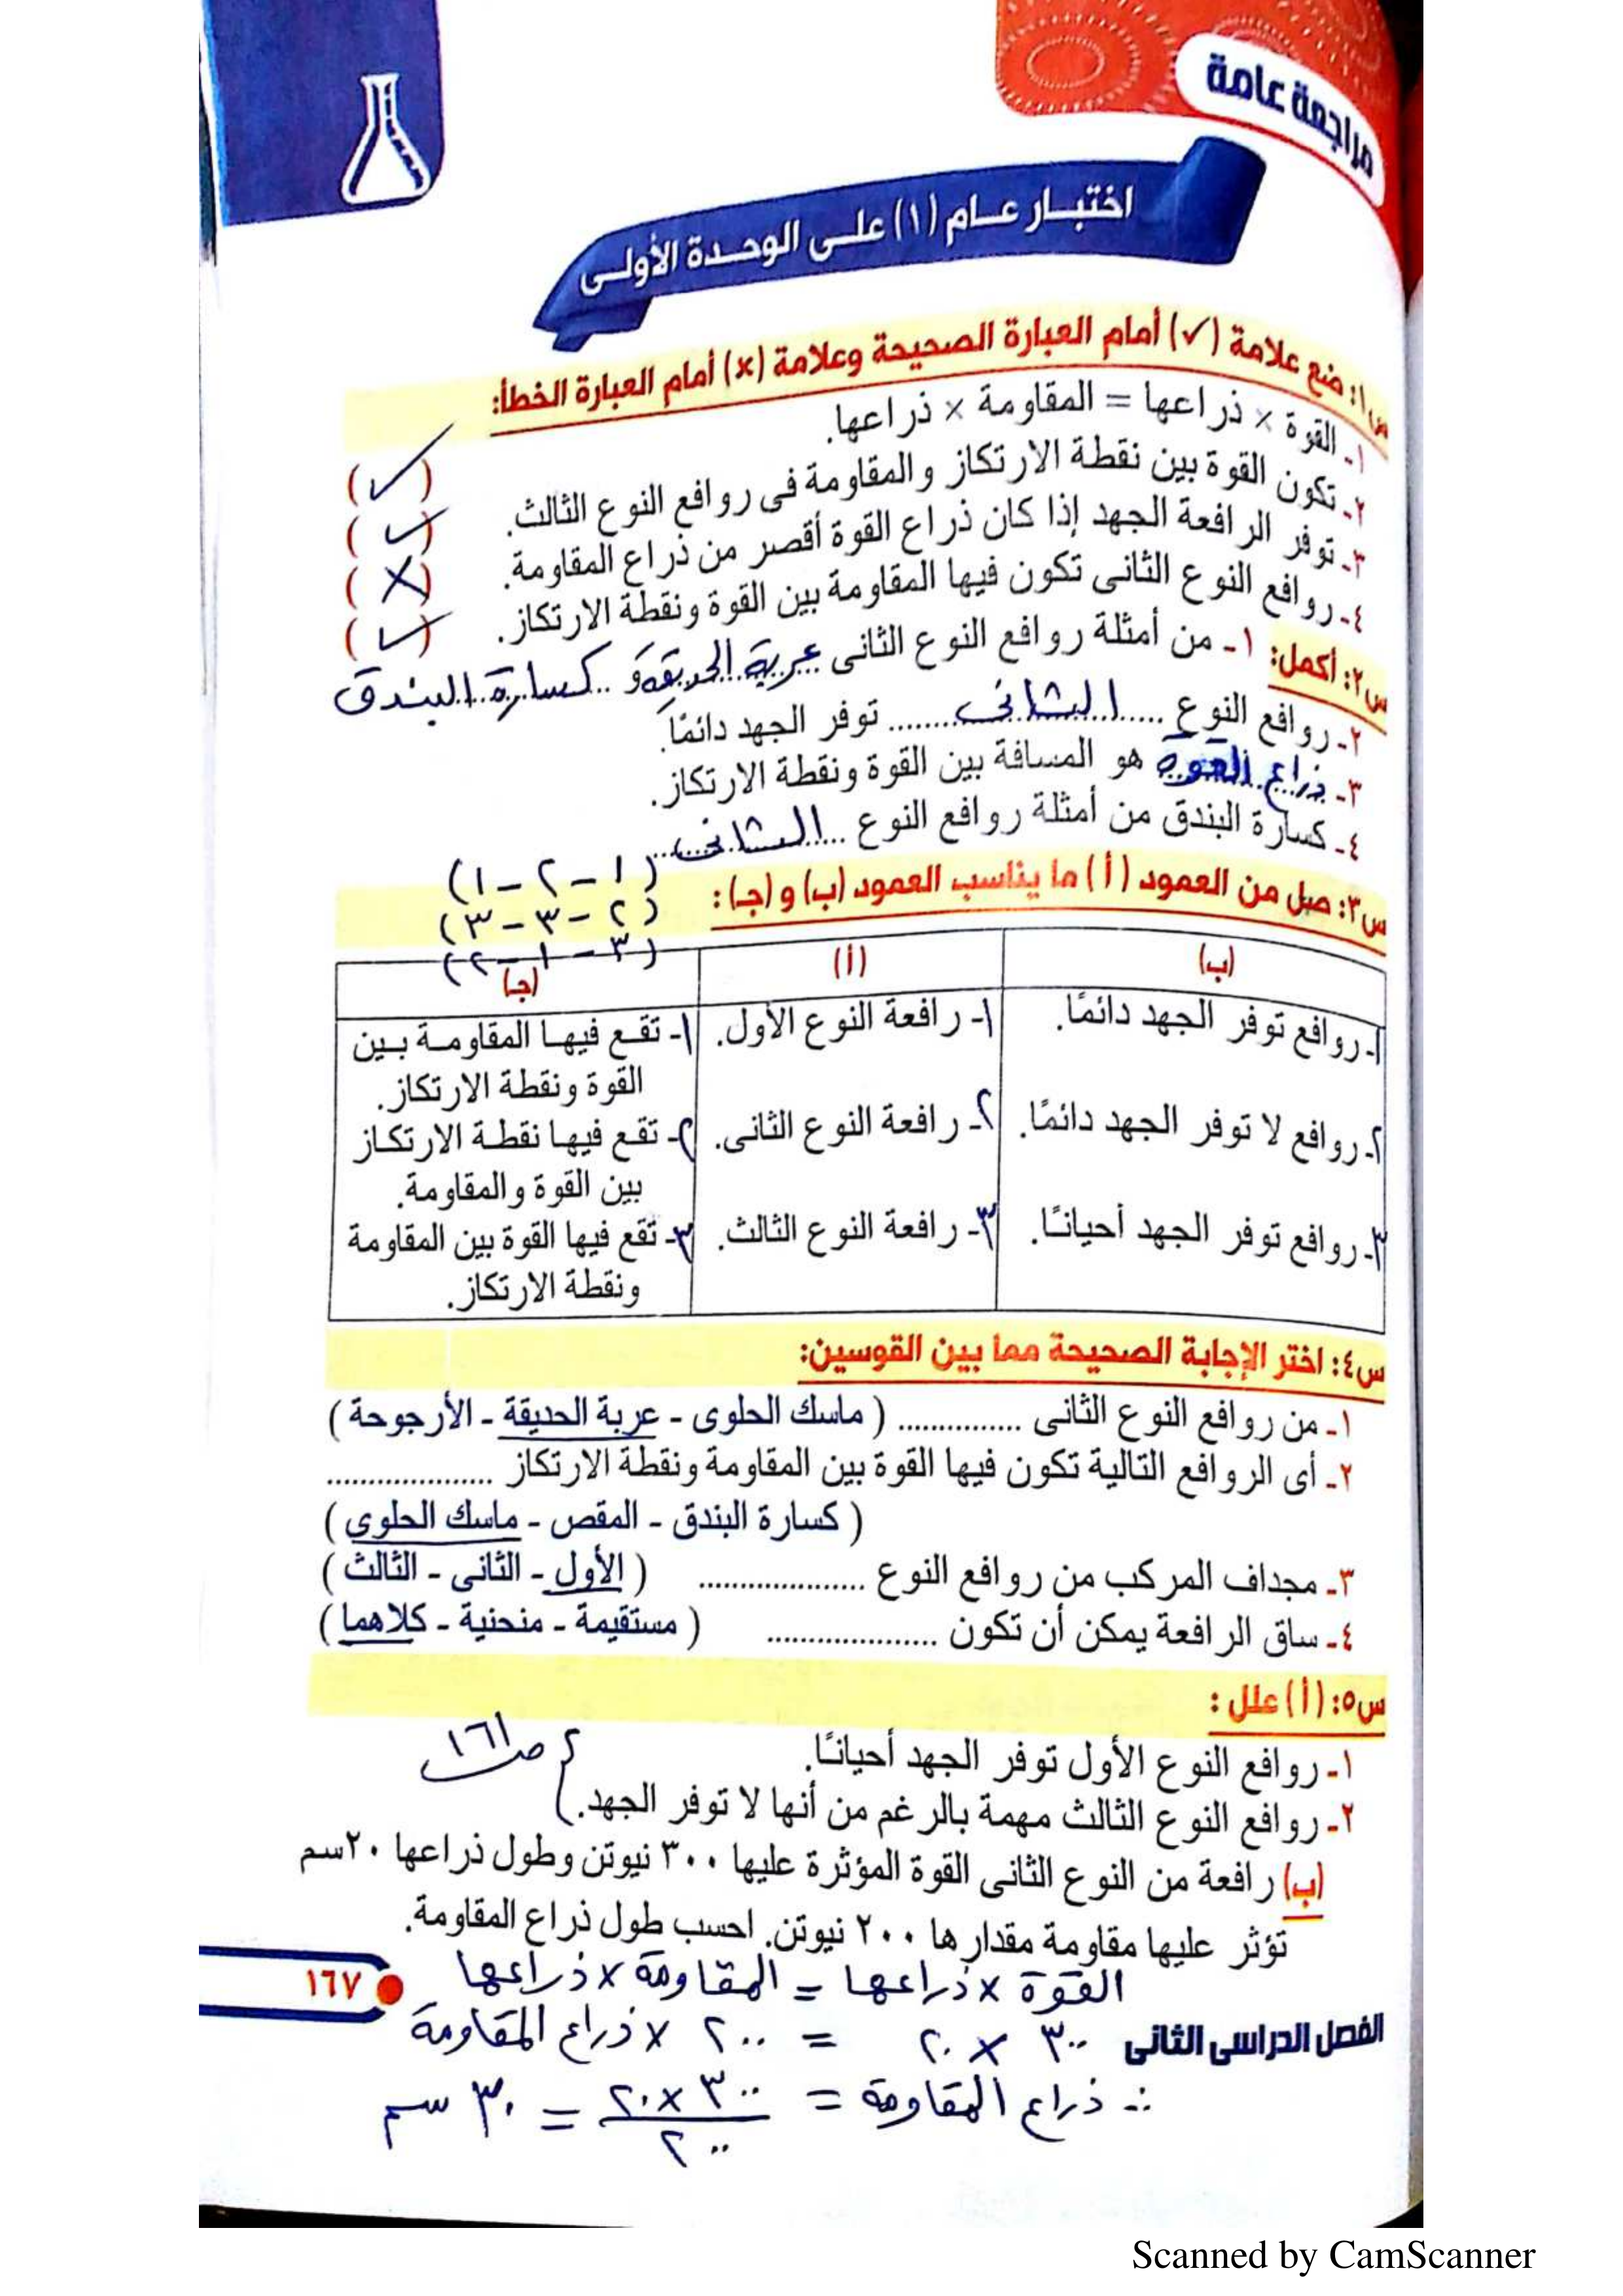 مراجعة عامة
اختبار عام (١) على الوحدة الأولى
س١: ضع علامة (✓) أمام العبارة الصحيحة وعلامة (×) أمام العبارة الخطأ:
١- القوة × ذراعها = المقاومة × ذراعها. (✓)
٢- تكون القوة بين نقطة الارتكاز والمقاومة فى روافع النوع الثالث. (✓)
٣- توفر الرافعة الجهد إذا كان ذراع القوة أقصر من ذراع المقاومة. (×)
٤- روافع النوع الثانى تكون فيها المقاومة بين القوة ونقطة الارتكاز. (✓)
س٢: أكمل: ١- من أمثلة روافع النوع الثانى عربة الحديقة و كسارة البندق
٢- روافع النوع الثانى توفر الجهد دائمًا.
٣- ذراع القوة هو المسافة بين القوة ونقطة الارتكاز.
٤- كسارة البندق من أمثلة روافع النوع الثانى
س٣: صل من العمود (أ) ما يناسب العمود (ب) و (جـ):
(١ - ٢ - ١)
(٢ - ٣ - ٣)
(٣ - ١ - ٢)
(ب) (أ) (جـ)
١- روافع توفر الجهد دائمًا. ١- رافعة النوع الأول. ١- تقع فيها المقاومة بين
القوة ونقطة الارتكاز.
٢- روافع لا توفر الجهد دائمًا. ٢- رافعة النوع الثانى. ٢- تقع فيها نقطة الارتكاز
بين القوة والمقاومة.
٣- روافع توفر الجهد أحيانًا. ٣- رافعة النوع الثالث. ٣- تقع فيها القوة بين المقاومة
ونقطة الارتكاز.
س٤: اختر الإجابة الصحيحة مما بين القوسين:
١- من روافع النوع الثانى .............. ( ماسك الحلوى - عربة الحديقة - الأرجوحة )
٢- أى الروافع التالية تكون فيها القوة بين المقاومة ونقطة الارتكاز ...................
( كسارة البندق - المقص - ماسك الحلوى )
٣- مجداف المركب من روافع النوع ................... ( الأول - الثانى - الثالث )
٤- ساق الرافعة يمكن أن تكون ................... ( مستقيمة - منحنية - كلاهما )
س٥: (أ) علل :
١- روافع النوع الأول توفر الجهد أحيانًا.
٢- روافع النوع الثالث مهمة بالرغم من أنها لا توفر الجهد.
ص ١٦١
(ب) رافعة من النوع الثانى القوة المؤثرة عليها ٣٠٠ نيوتن وطول ذراعها ٢٠سم
تؤثر عليها مقاومة مقدارها ٢٠٠ نيوتن. احسب طول ذراع المقاومة.
القوة × ذراعها = المقاومة × ذراعها
٣٠٠ × ٢٠ = ٢٠٠ × ذراع المقاومة
∴ ذراع المقاومة = ٣٠٠ × ٢٠ / ٢٠٠ = ٣٠ سم
١٦٧
الفصل الدراسى الثانى
Scanned by CamScanner